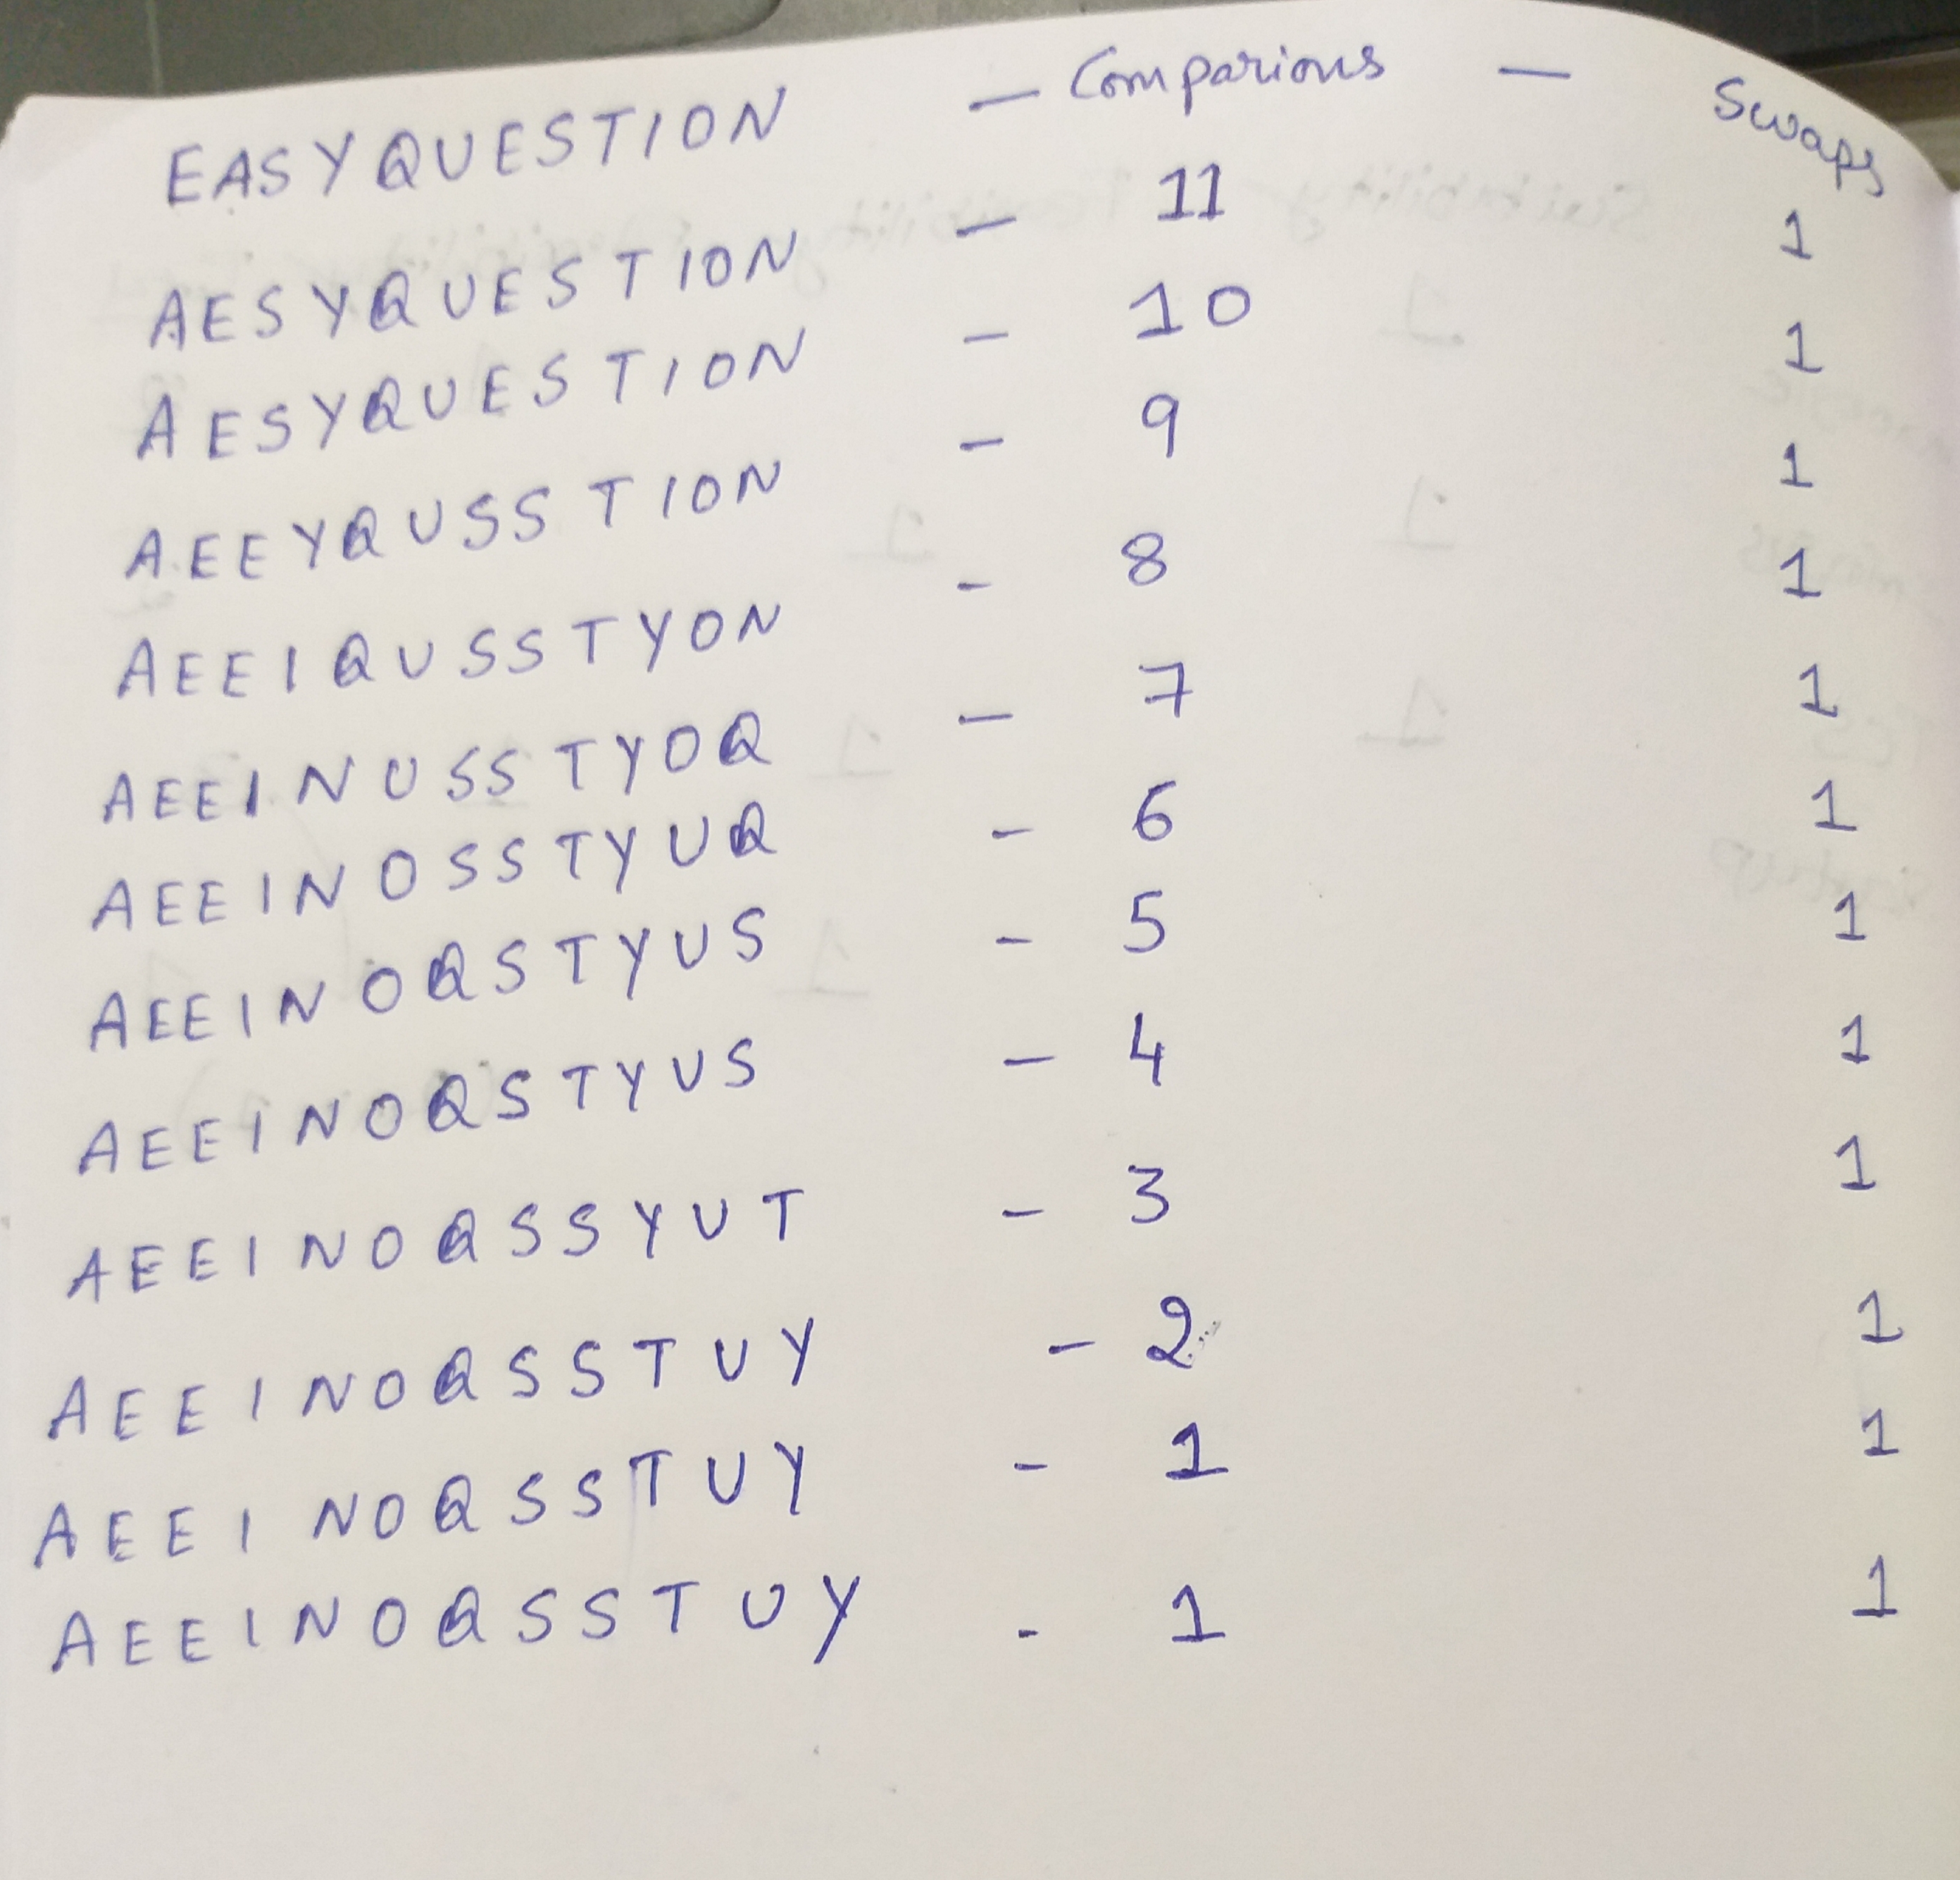 EASYQUESTION — Comparions — Swaps
AESYQUESTION — 11 1
AESYQUESTION — 10 1
AEEYQUSSTION — 9 1
AEEIQUSSTYON — 8 1
AEEINUSSTYOQ — 7 1
AEEINOSSTYUQ — 6 1
AEEINOQSTYUS — 5 1
AEEINOQSTYUS — 4 1
AEEINOQSSYUT — 3 1
AEEINOQSSTUY — 2 1
AEEINOQSSTUY — 1 1
AEEINOQSSTUY - 1 1